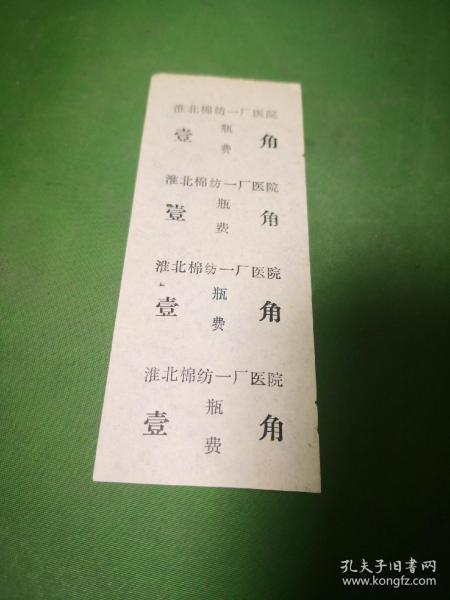 淮北棉纺一厂医院
壹 瓶费 角
淮北棉纺一厂医院
壹 瓶费 角
淮北棉纺一厂医院
壹 瓶费 角
淮北棉纺一厂医院
壹 瓶费 角
孔夫子旧书网
www.kongfz.com